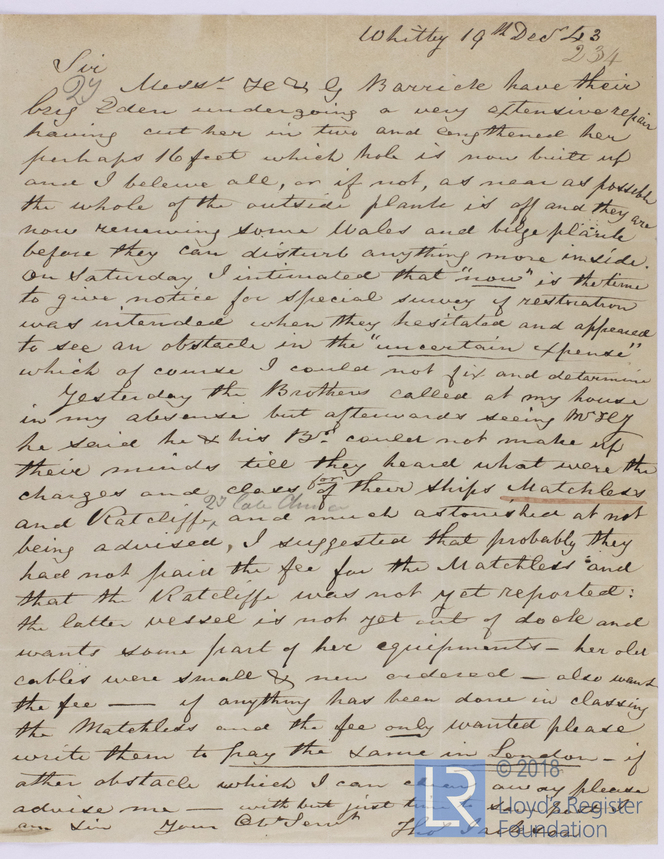 Whitby 19th Decr 43
234
Sir
27 Messrs H & G Barrick have their
brig Eden undergoing a very extensive repair
having cut her in two and lengthened her
perhaps 16 feet which hole is now built up
and I beleive all, or if not, as near as possible
the whole of the outside plank is off and they are
now renewing some Wales and bilge plank
before they can disturb anything more inside.
On Saturday I intimated that "now" is the time
to give notice for special survey if restoration
was intended when they hesitated and appeared
to see an obstacle in the "uncertain expense"
which of course I could not fix and determine
Yesterday the Brothers called at my house
in my absense but afterwards seeing Mr
he said he & his Br. could not make up
their minds till they heard what were the
charges and class for of their ships Matchless
27 late
and Ratcliffe, and much astonished at not
being advised, I suggested that probably they
had not paid the fee for the Matchless and
that the Ratcliffe was not yet reported:
the latter vessel is not yet out of dock and
wants some part of her equipments - her old
cables were small & new ordered - also want
the fee — if anything has been done in classing
the Matchless and the fee only wanted please
write them to pay the same in London - if
other obstacle which I can clear away please
advise me — with but just time to save post I
am Sir Your Obt Servt Thos
© 2018
Lloyd's Register
Foundation
LR